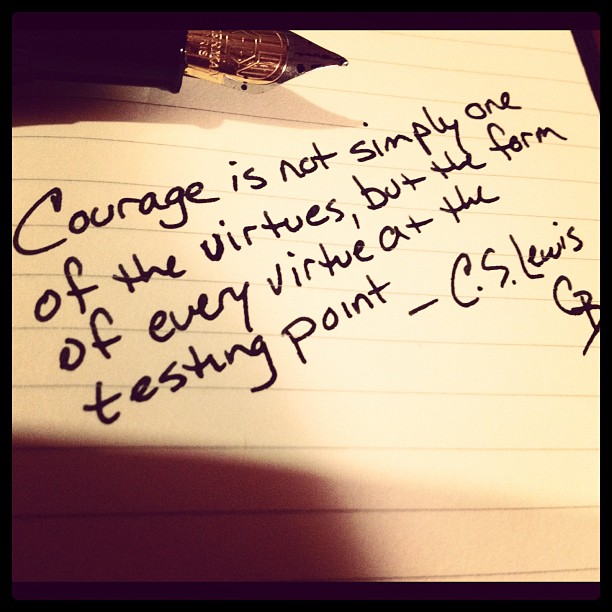 GERMANY
Courage is not simply one
of the virtues, but the form
of every virtue at the
testing point – C.S. Lewis